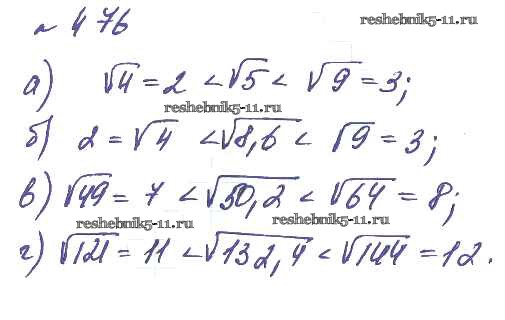 № 476
reshebnik5-11.ru
а) √4 = 2 < √5 < √9 = 3;
reshebnik5-11.ru
б) 2 = √4 < √8,6 < √9 = 3;
в) √49 = 7 < √50,2 < √64 = 8;
reshebnik5-11.ru reshebnik5-11.ru
г) √121 = 11 < √132,4 < √144 = 12.